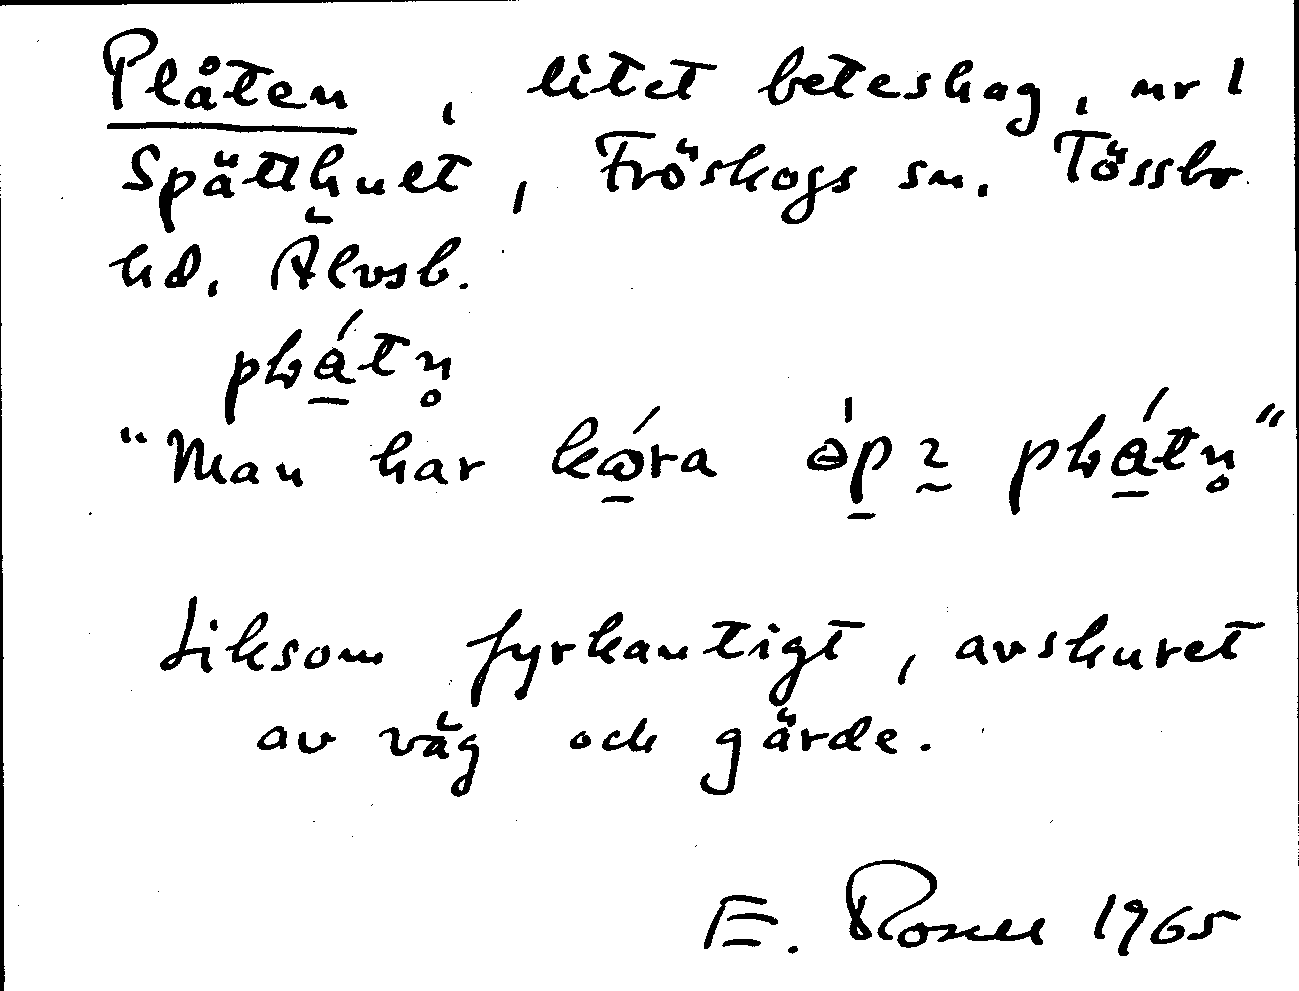 Plåten, litet beteshag, nr 1
Spätthult, Fröskogs sn. Tössbo
hd. Älvsb.
"Man har
Liksom fyrkantigt, avskuret
av väg och gärde.
E. Rosell 1965